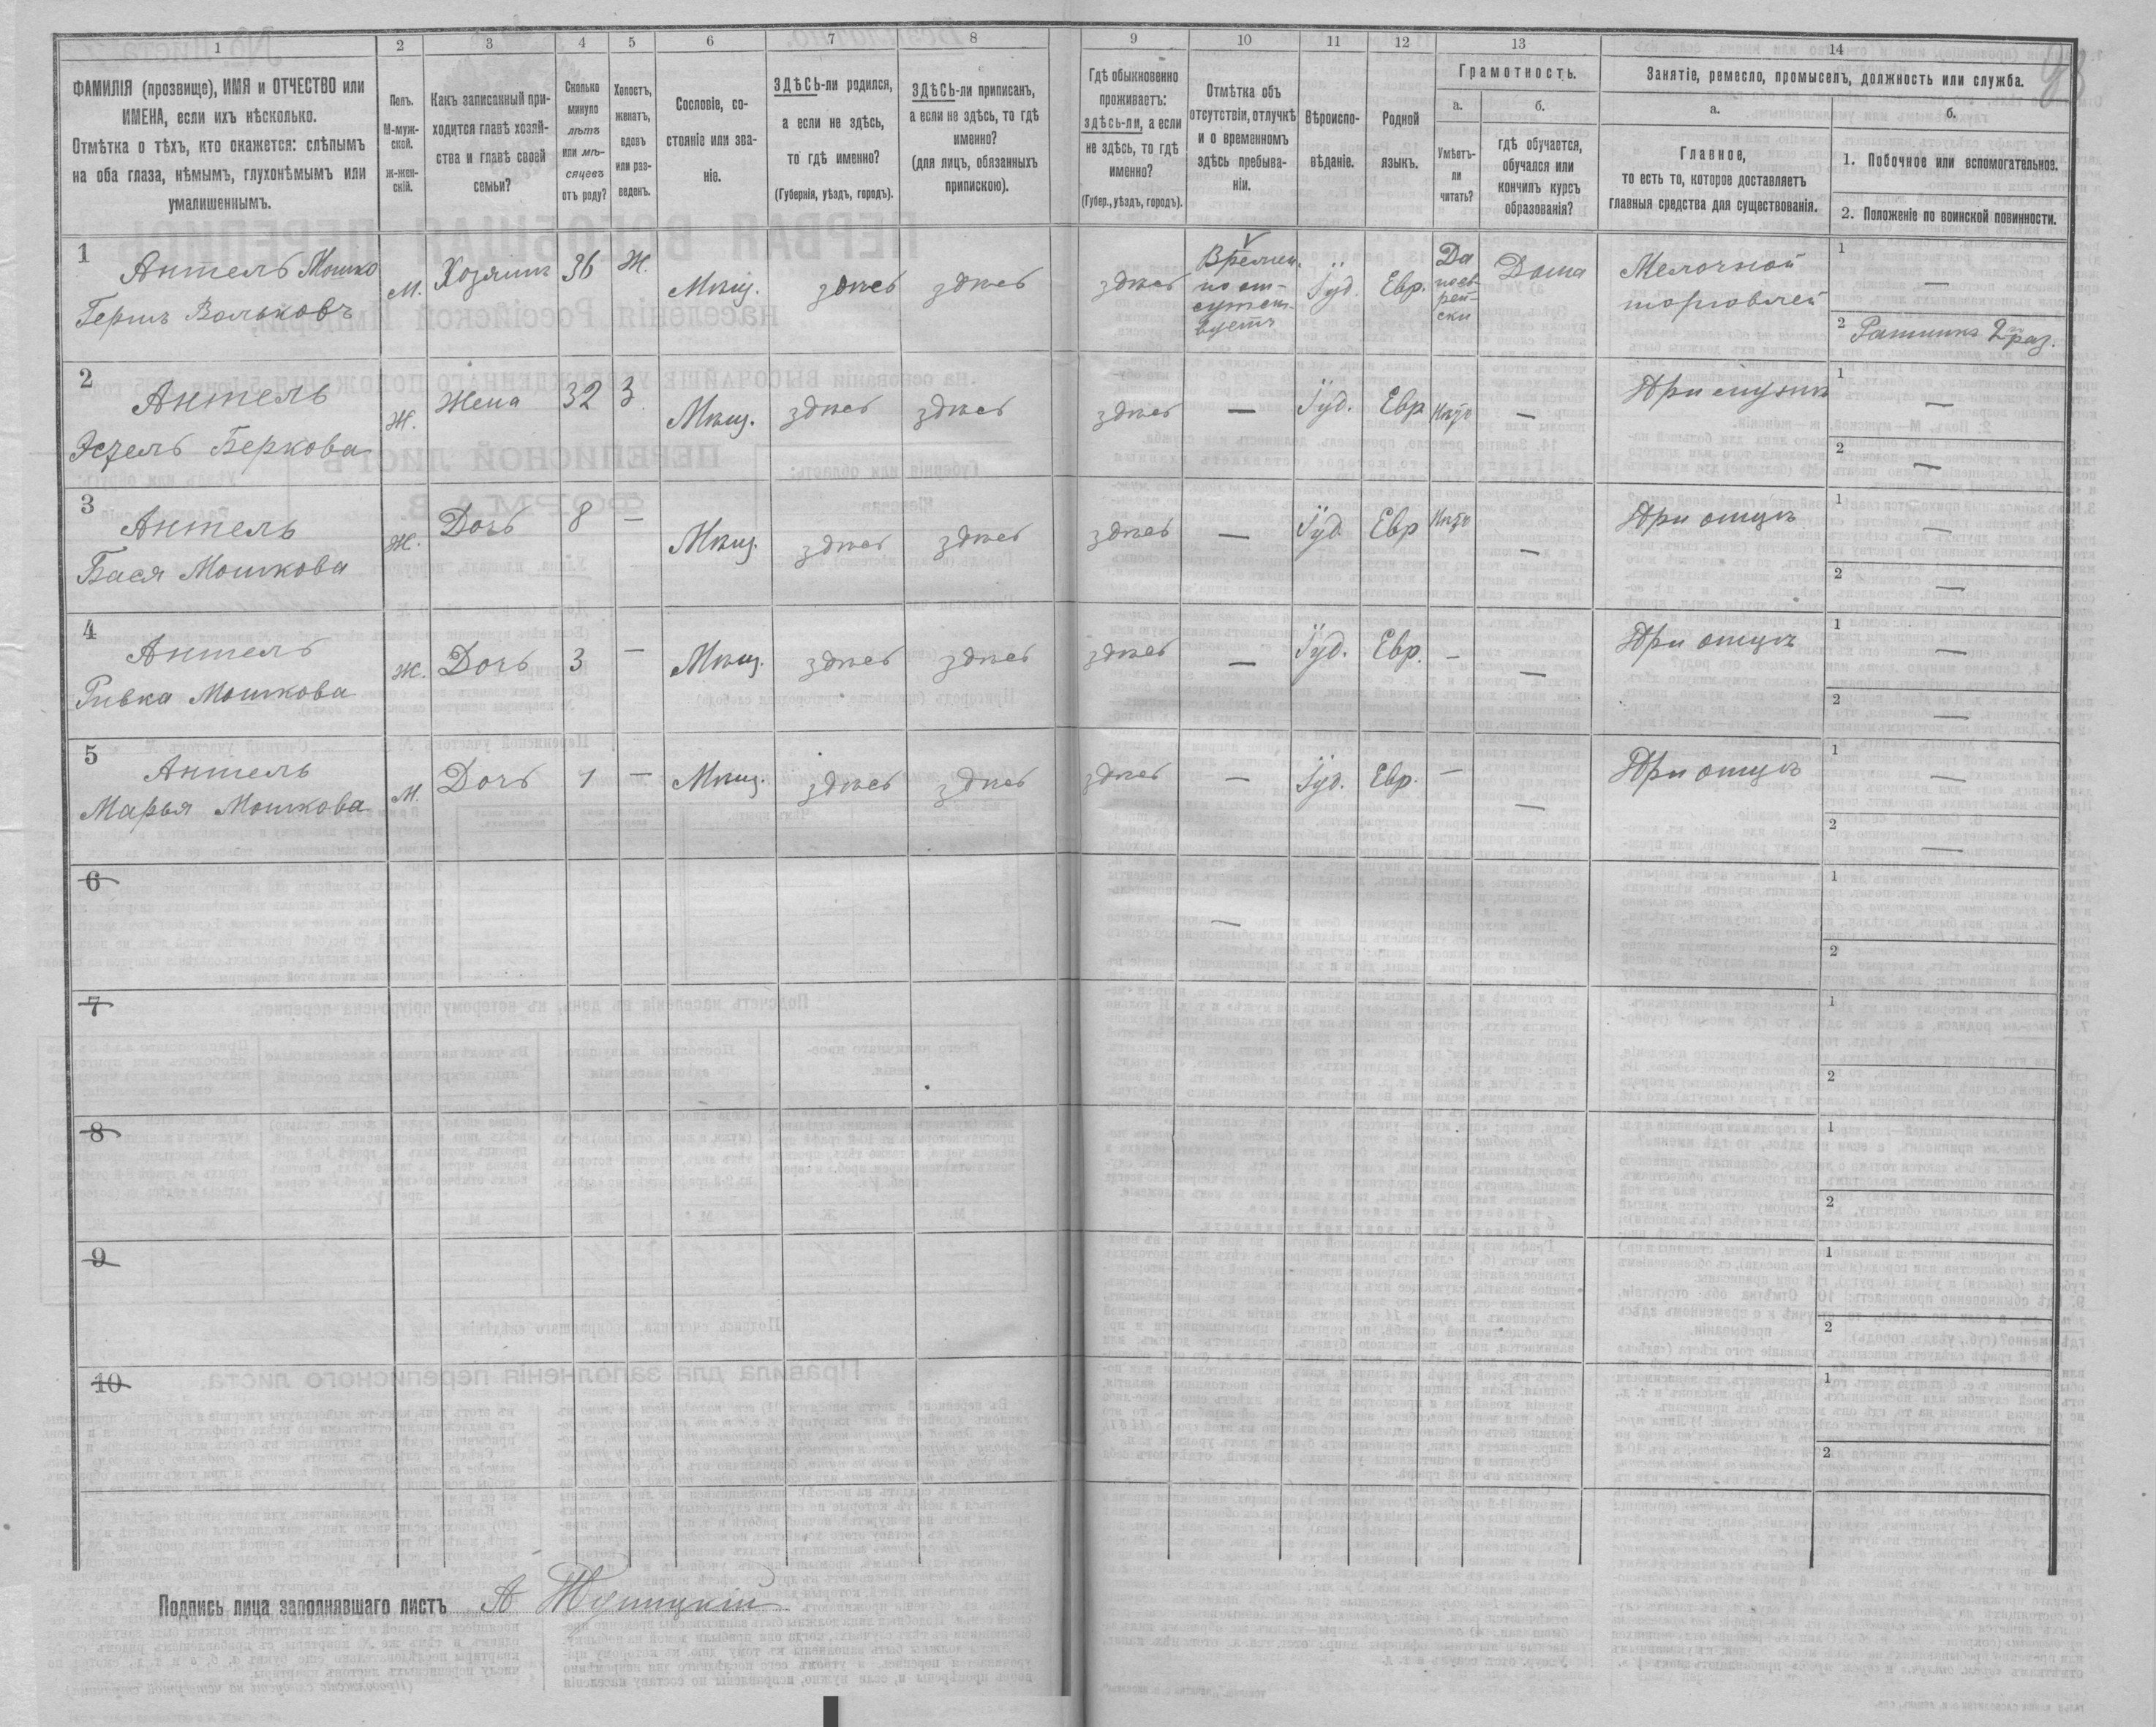 1 2 3 4 5 6 7 8 9 10 11 12 13 14
ФАМИЛІЯ (прозвище), ИМЯ и ОТЧЕСТВО или
ИМЕНА, если ихъ нѣсколько.
Отмѣтка о тѣхъ, кто окажется: слѣпымъ
на оба глаза, нѣмымъ, глухонѣмымъ или
умалишеннымъ.
Полъ.
М-муж-
ской.
ж-жен-
скій.
Какъ записанный при-
ходится главѣ хозяй-
ства и главѣ своей
семьи?
Сколько
минуло
лѣтъ
или мѣ-
сяцевъ
отъ роду?
Холостъ,
женатъ,
вдовъ
или раз-
веденъ.
Сословіе, со-
стояніе или зва-
ніе.
ЗДѢСЬ-ли родился,
а если не здѣсь,
то гдѣ именно?
(Губернія, уѣздъ, городъ).
ЗДѢСЬ-ли приписанъ,
а если не здѣсь, то гдѣ
именно?
(для лицъ, обязанныхъ
припискою).
Гдѣ обыкновенно
проживаетъ:
здѣсь-ли, а если
не здѣсь, то гдѣ
именно?
(Губер., уѣздъ, городъ).
Отмѣтка объ
отсутствіи, отлучкѣ
и о временномъ
здѣсь пребыва-
ніи.
Вѣроиспо-
вѣданіе.
Родной
языкъ.
Грамотность.
а.
Умѣетъ-
ли
читать?
б.
гдѣ обучается,
обучался или
кончилъ курсъ
образованія?
Занятіе, ремесло, промыселъ, должность или служба.
а.
Главное,
то есть то, которое доставляетъ
главныя средства для существованія.
б.
1. Побочное или вспомогательное.
2. Положеніе по воинской повинности.
1 Антель Мошко
Гершъ Вольковъ
М. Хозяинъ 36 Ж. Мѣщ. здѣсь здѣсь здѣсь
Времен.
но от-
сутст-
вуетъ
Іуд. Евр.
Да
по ев-
рей-
ски
Дома
Мелочной
торговлей
1 —
2 Ратникъ 2 раз.
2 Антель
Эстель Беркова
Ж. Жена 32 З Мѣщ. здѣсь здѣсь здѣсь — Іуд. Евр. Нѣтъ — При мужѣ
1 —
2 —
3 Антель
Бася Мошкова
Ж. Дочь 8 — Мѣщ. здѣсь здѣсь здѣсь — Іуд. Евр Нѣтъ — При отцѣ
1 —
2 —
4 Антель
Ривка Мошкова
Ж. Дочь 3 — Мѣщ. здѣсь здѣсь здѣсь — Іуд. Евр. — — При отцѣ
1 —
2 —
5 Антель
Марья Мошкова
М. Дочь 1 — Мѣщ. здѣсь здѣсь здѣсь — Іуд. Евр. — — При отцѣ
1 —
2 —
6 — 1
2
7 1
2
8 1
2
9 1
2
10 1
2
Подпись лица заполнявшаго листъ А